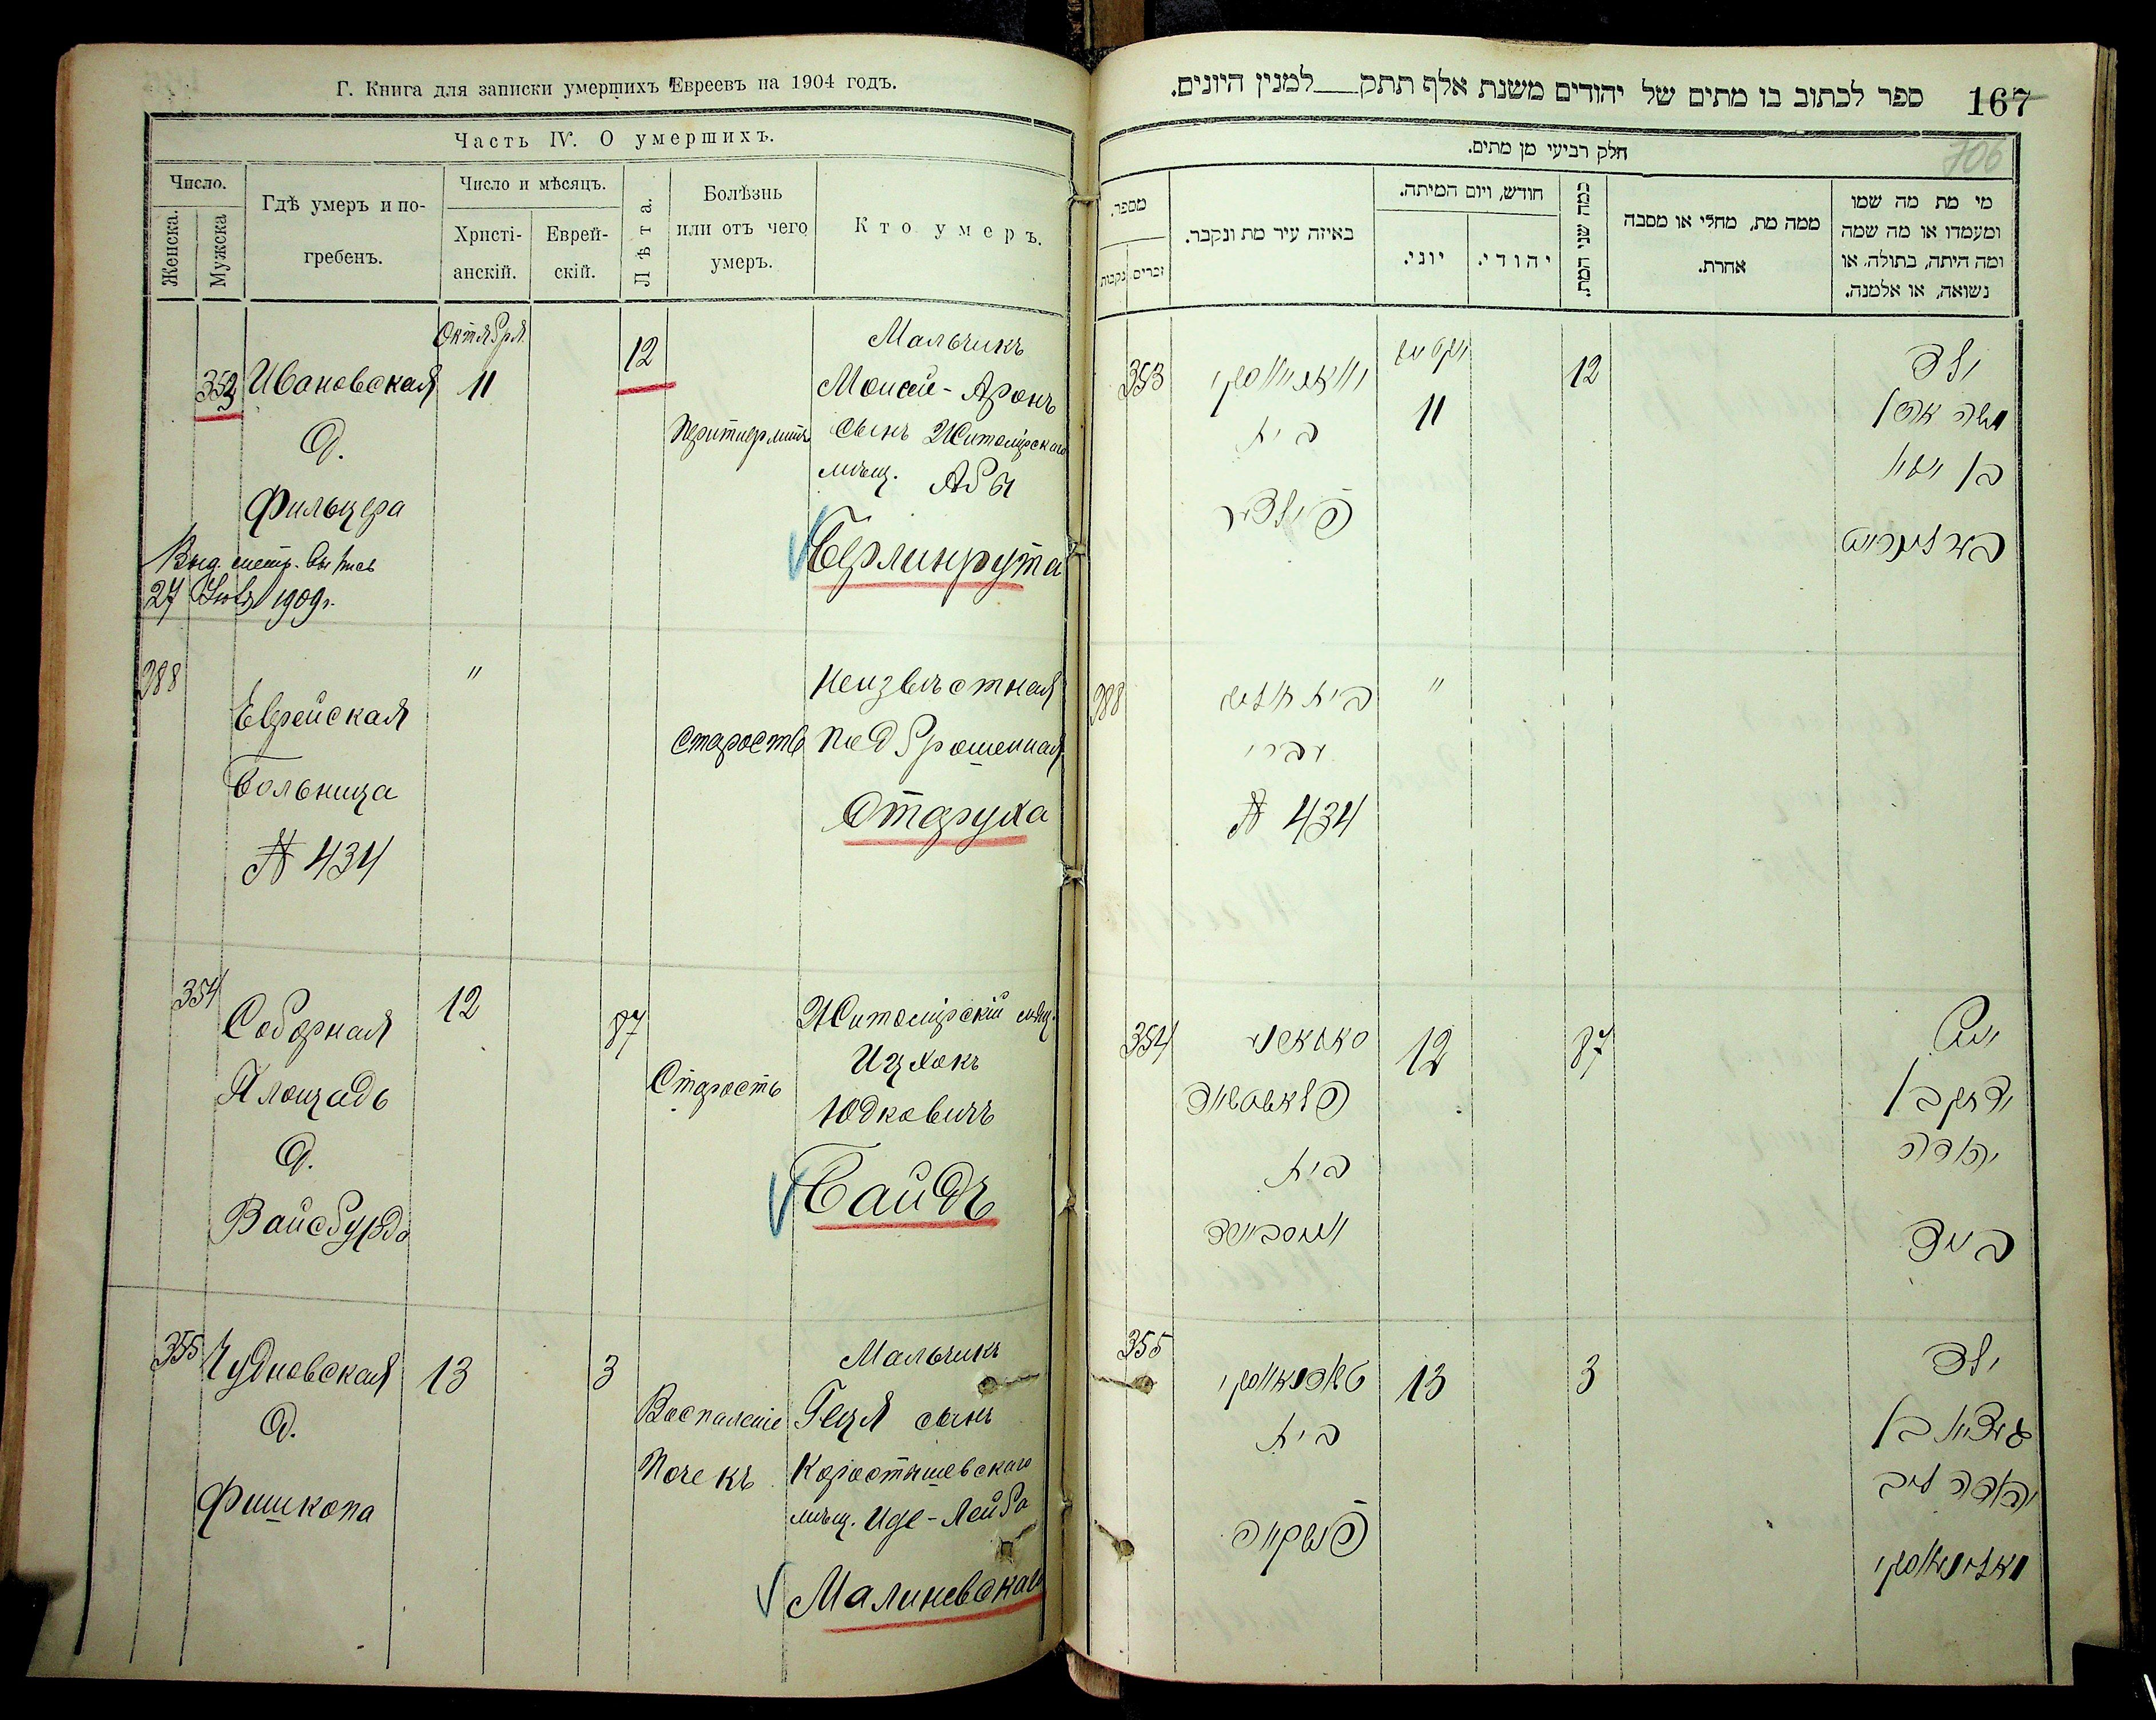 Г. Книга для записки умершихъ Евреевъ на 1904 годъ.
Часть IV. О умершихъ.
Число.
Женска.
Мужска
Гдѣ умеръ и по-
гребенъ.
Число и мѣсяцъ.
Христі-
анскій.
Еврей-
скій.
Лѣта.
Болѣзнь
или отъ чего
умеръ.
Кто умеръ.
353
Ивановская
д.
Фильцера
Октября
11
12
Перитонитъ
Мальчикъ
Моисей-Аронъ
сынъ Житомірскаго
мѣщ. Абы
Берлинрута
27 1909г.
288
Еврейская
больница
№ 434
"
старость
Неизвѣстная
подброшенная
Старуха
354
Соборная
Площадь
д.
Вайсбурда
12
87
Старость
Житомірскій мѣщ.
Ицхокъ
Юдковичъ
Байдъ
355
Чудновская
д.
Фишкопа
13
3
Воспаленіе
Почекъ
Мальчикъ
Геця сынъ
Коростышевскаго
мѣщ. Иде-Лейба
Малиневскаго
ספר לכתוב בו מתים של יהודים משנת אלף תתק למנין היונים.
167
706
חלק רביעי מן מתים.
מספר.
זכרים
נקבות
באיזה עיר מת ונקבר.
חודש, ויום המיתה.
יוני.
יהודי.
כמה שני המת.
ממה מת, מחלי או מסבה
אחרת.
מי מת מה שמו
ומעמדו או מה שמה
ומה היתה, בתולה, או
נשואה, או אלמנה.
353
בית
11
12
ילד
משה אהרן
בן
288
בית
№ 434
"
354
בית
12
87
יצחק בן
יהודה
בייד
355
בית
13
3
ילד
יהודה לייב